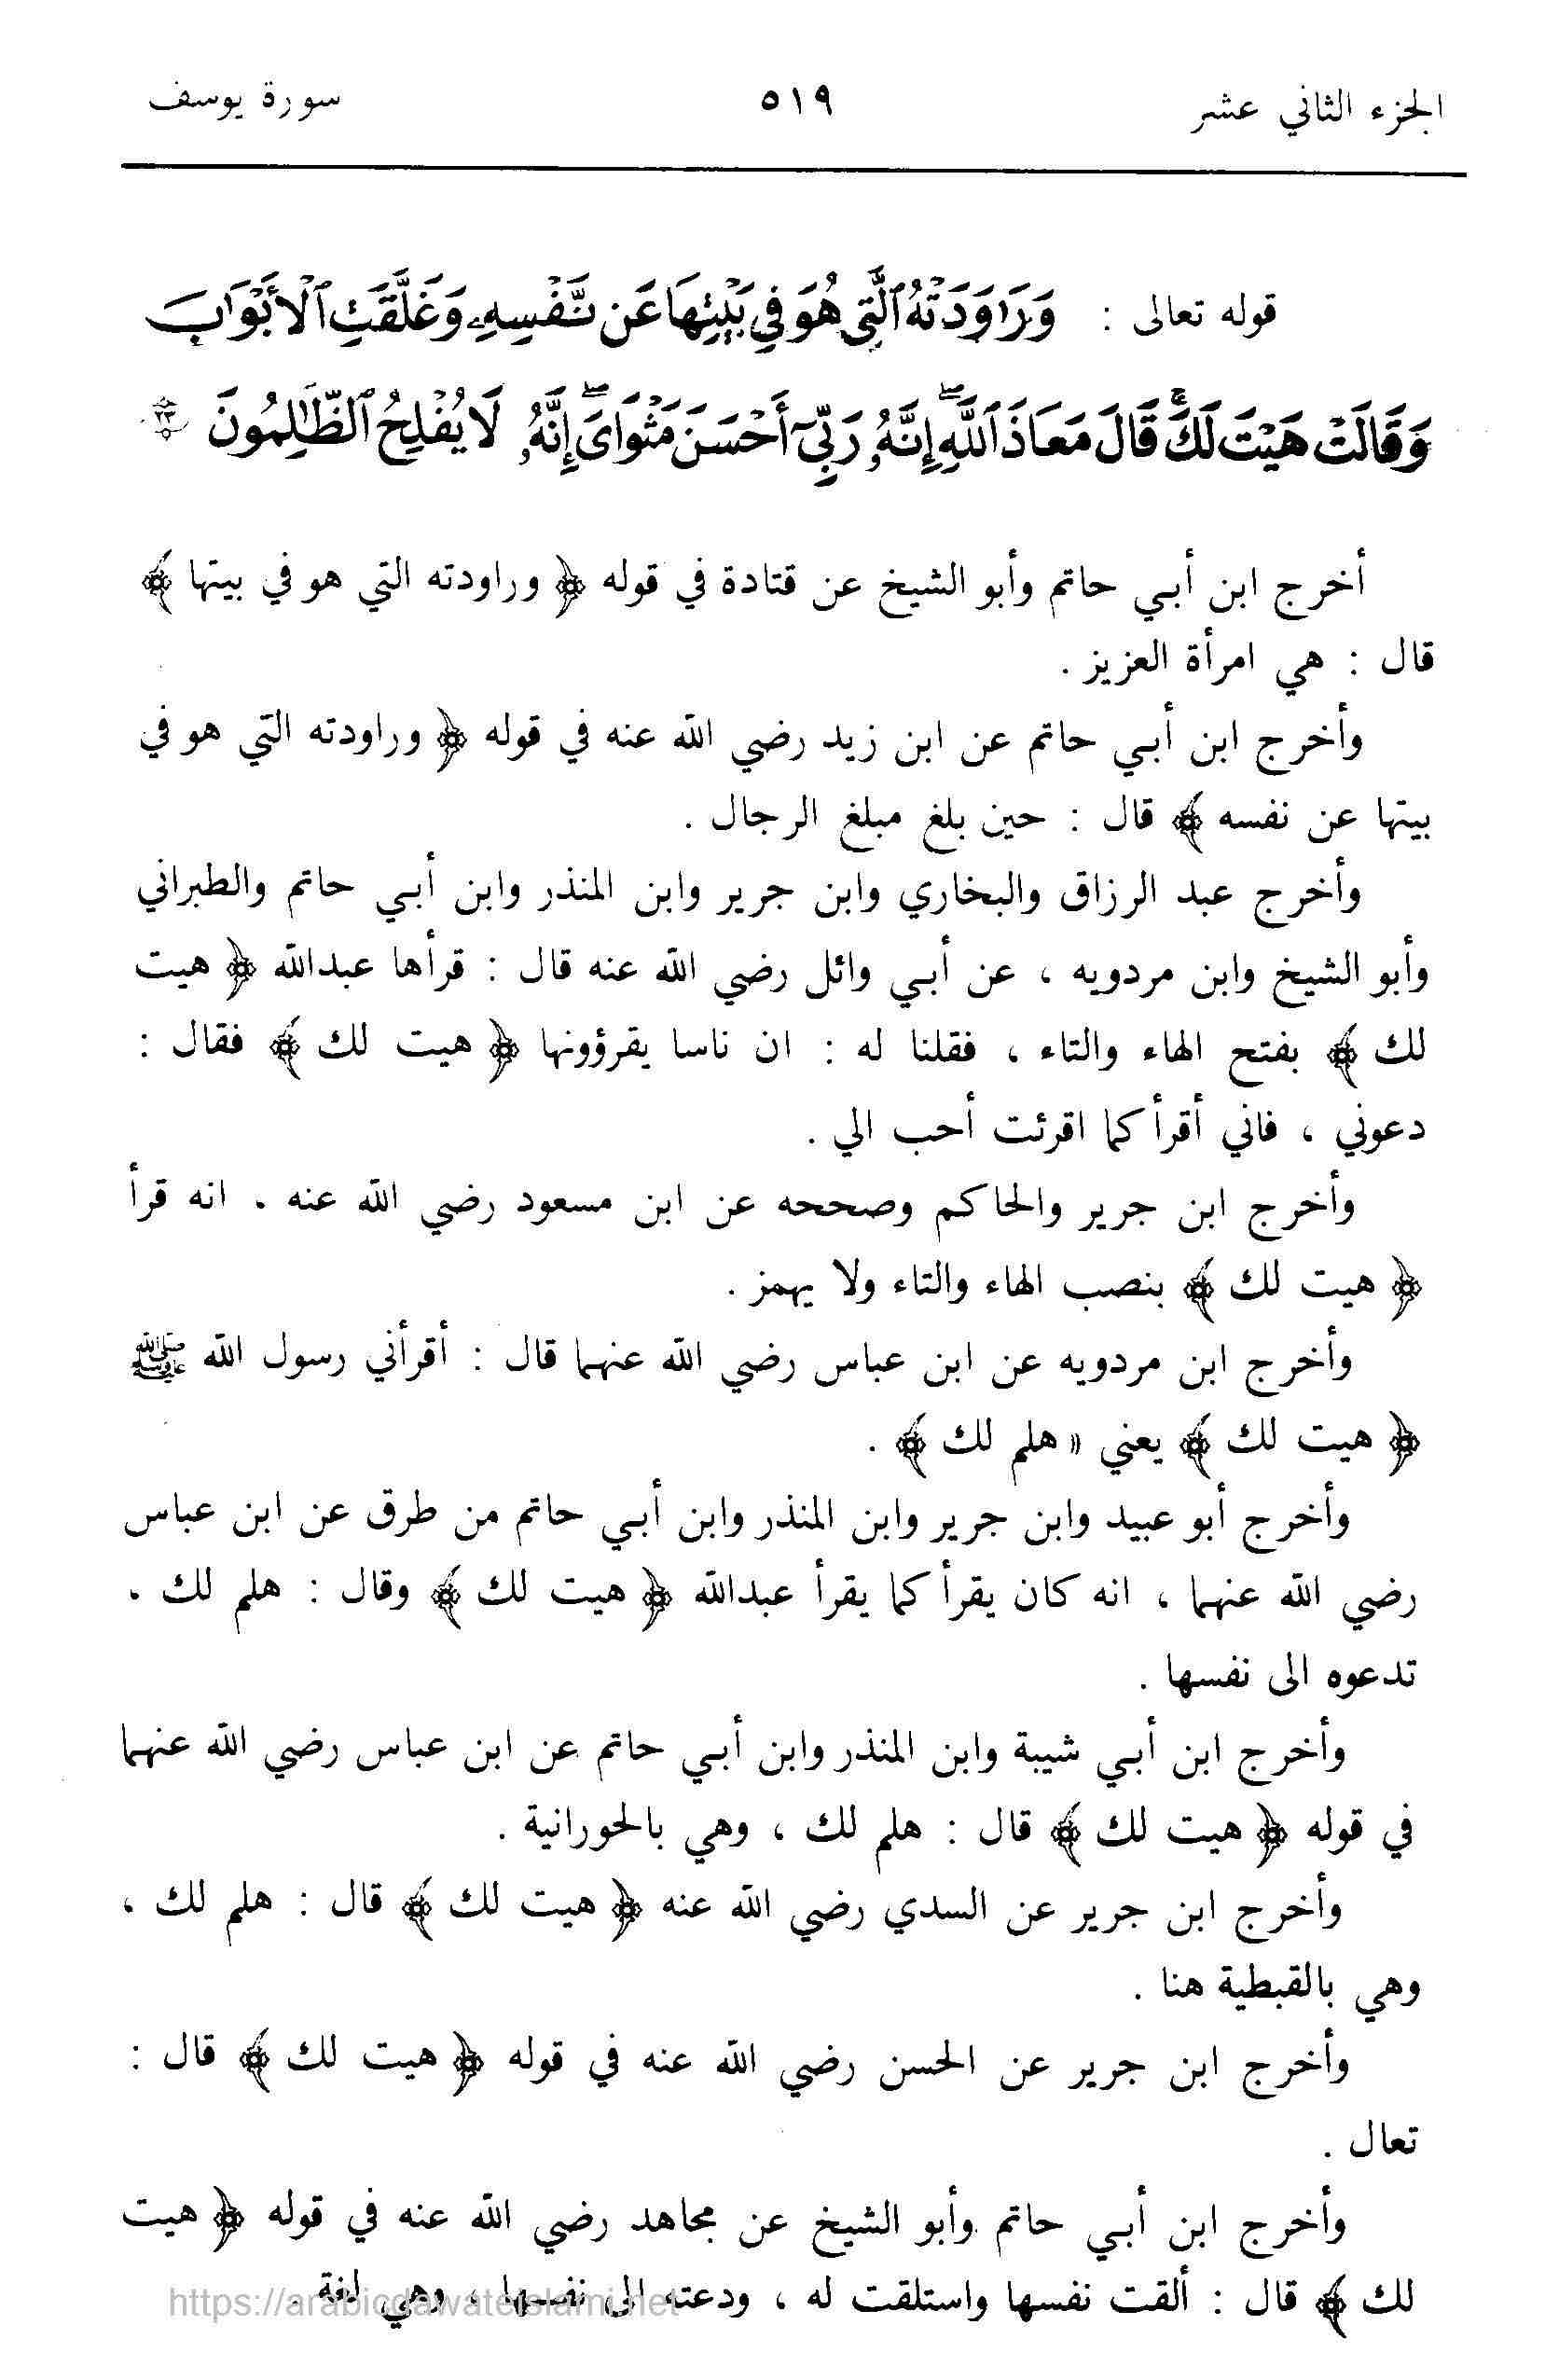 الجزء الثاني عشر ٥١٩ سورة يوسف
قوله تعالى : وَرَاوَدَتْهُ ٱلَّتِى هُوَ فِى بَيْتِهَا عَن نَّفْسِهِۦ وَغَلَّقَتِ ٱلْأَبْوَٰبَ
وَقَالَتْ هَيْتَ لَكَ ۚ قَالَ مَعَاذَ ٱللَّهِ ۖ إِنَّهُۥ رَبِّىٓ أَحْسَنَ مَثْوَاىَ ۖ إِنَّهُۥ لَا يُفْلِحُ ٱلظَّٰلِمُونَ ٢٣
أخرج ابن أبـي حاتم وأبو الشيخ عن قتادة في قوله ﴿ وراودته التي هو في بيتها ﴾
قال : هي امرأة العزيز .
وأخرج ابن أبـي حاتم عن ابن زيد رضي الله عنه في قوله ﴿ وراودته التي هو في
بيتها عن نفسه ﴾ قال : حين بلغ مبلغ الرجال .
وأخرج عبد الرزاق والبخاري وابن جرير وابن المنذر وابن أبـي حاتم والطبراني
وأبو الشيخ وابن مردويه ، عن أبـي وائل رضي الله عنه قال : قرأها عبدالله ﴿ هيت
لك ﴾ بفتح الهاء والتاء ، فقلنا له : ان ناسا يقرؤونها ﴿ هيت لك ﴾ فقال :
دعوني ، فاني أقرأ كما اقرئت أحب الي .
وأخرج ابن جرير والحاكم وصححه عن ابن مسعود رضي الله عنه . انه قرأ
﴿ هيت لك ﴾ بنصب الهاء والتاء ولا يهمز .
وأخرج ابن مردويه عن ابن عباس رضي الله عنهما قال : أقرأني رسول الله ﷺ
﴿ هيت لك ﴾ يعني « هلم لك ﴾ .
وأخرج أبو عبيد وابن جرير وابن المنذر وابن أبـي حاتم من طرق عن ابن عباس
رضي الله عنهما ، انه كان يقرأ كما يقرأ عبدالله ﴿ هيت لك ﴾ وقال : هلم لك .
تدعوه الى نفسها .
وأخرج ابن أبـي شيبة وابن المنذر وابن أبـي حاتم عن ابن عباس رضي الله عنهما
في قوله ﴿ هيت لك ﴾ قال : هلم لك ، وهي بالحورانية .
وأخرج ابن جرير عن السدي رضي الله عنه ﴿ هيت لك ﴾ قال : هلم لك ،
وهي بالقبطية هنا .
وأخرج ابن جرير عن الحسن رضي الله عنه في قوله ﴿ هيت لك ﴾ قال :
تعال .
وأخرج ابن أبـي حاتم وأبو الشيخ عن مجاهد رضي الله عنه في قوله ﴿ هيت
لك ﴾ قال : ألقت نفسها واستلقت له ، ودعته الى نفسها ، وهي لغة .
https://arabicdawateislami.net